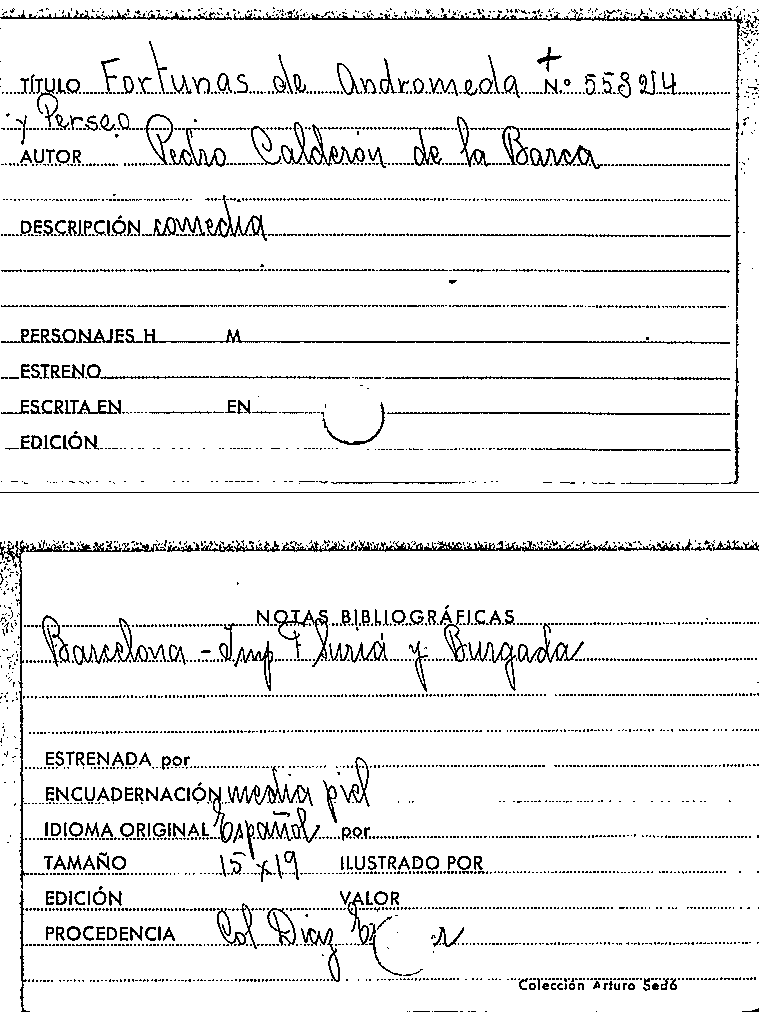 TÍTULO Fortunas de Andromeda + N.º 558214
y Perseo
AUTOR Pedro Calderón de la Barca
DESCRIPCIÓN comedia
PERSONAJES H M
ESTRENO
ESCRITA EN EN
EDICIÓN
NOTAS BIBLIOGRÁFICAS
Barcelona - Imp F Suriá y Burgada
ESTRENADA por
ENCUADERNACIÓN media piel
IDIOMA ORIGINAL Español por
TAMAÑO 15 x 19 ILUSTRADO POR
EDICIÓN VALOR
PROCEDENCIA Col Diaz
Colección Arturo Sedó